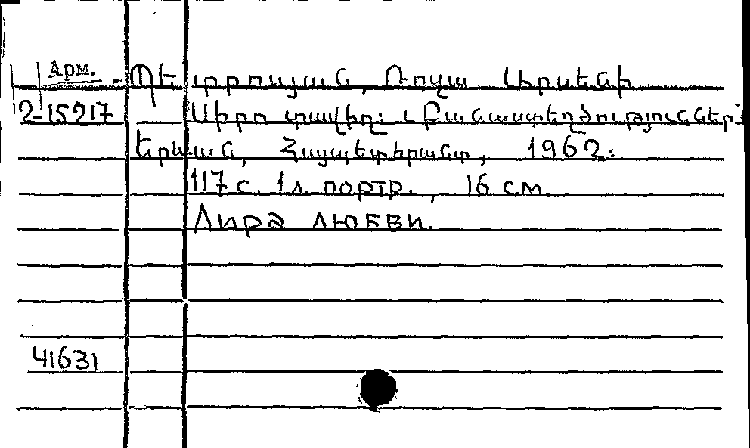 Арм.
Պետրոսյան, Ռոզա Արսենի
2-15217 Սիրո տավիղ: [Բանաստեղծություններ]
Երևան, Հայպետհրատ, 1962:
117 с. 1 л. портр., 16 см.
Лира любви.
41631